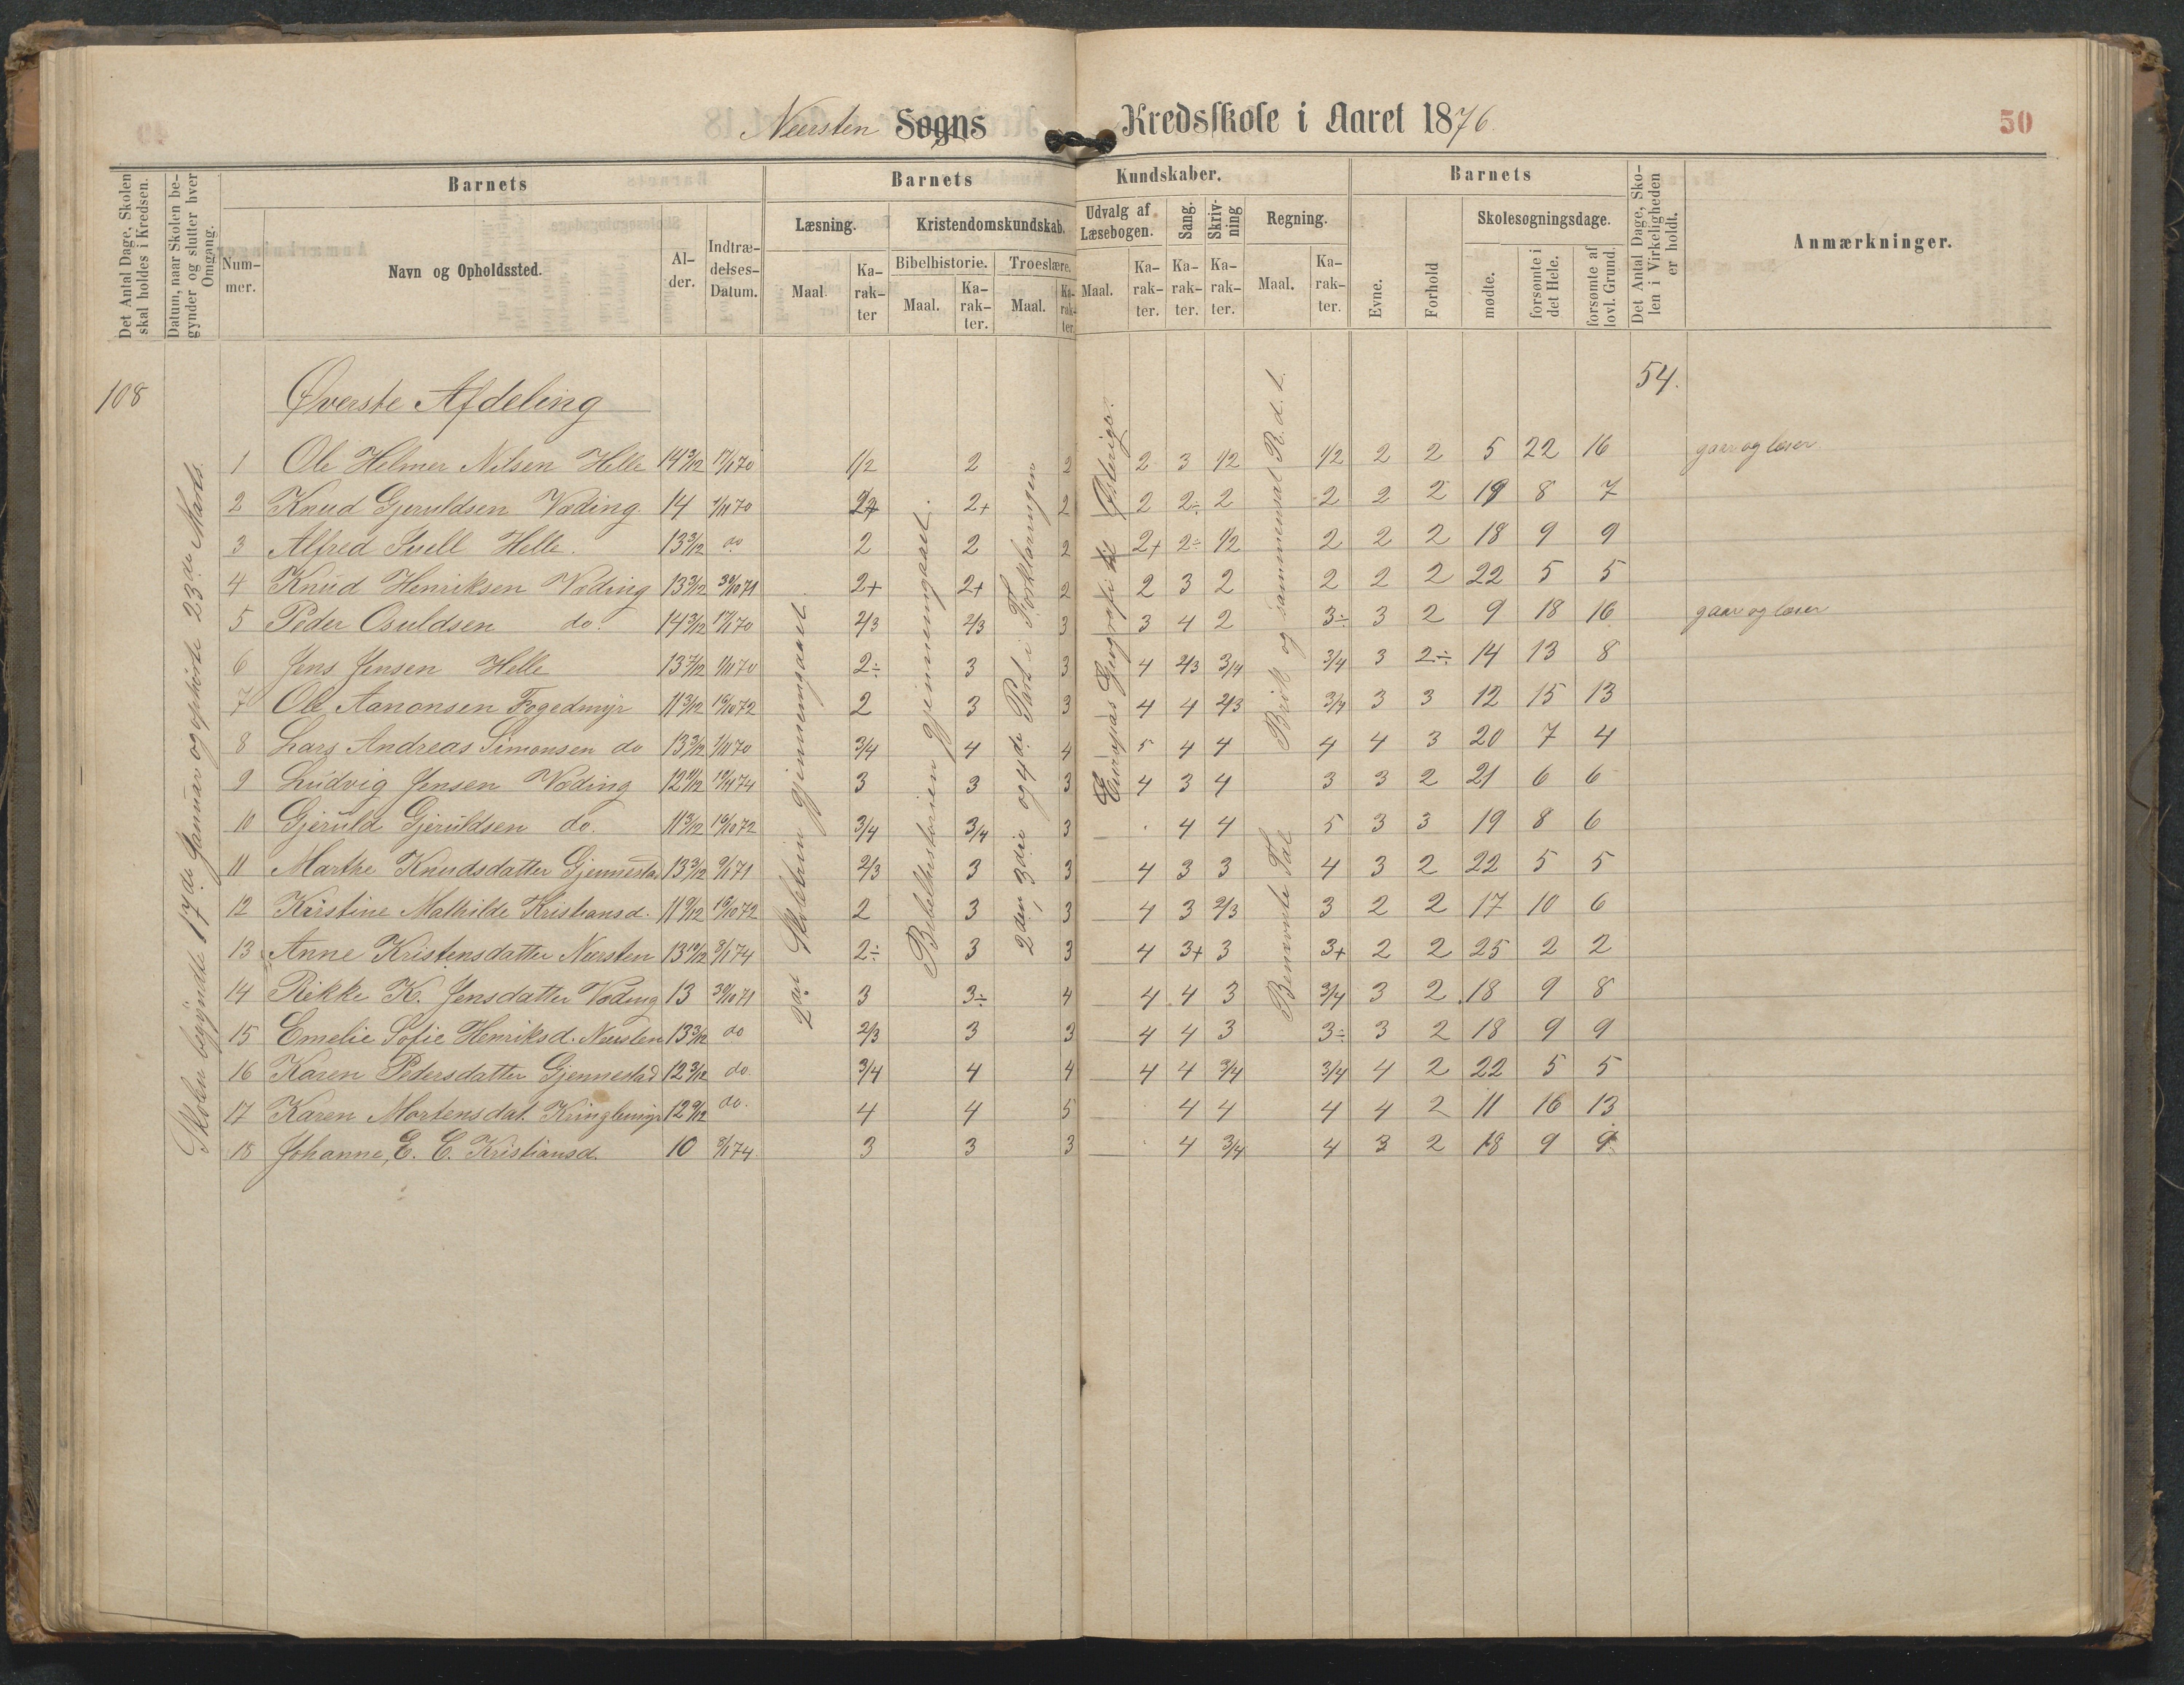 Neersten Sogns Kredsskole i Aaret 1876.
50
Det Antal Dage, Skolen skal holdes i Kredsen.
Datum, naar Skolen begynder og slutter hver Omgang.
Barnets
Nummer.
Navn og Opholdssted.
Alder.
Indtrædelses-Datum.
Barnets Kundskaber.
Læsning.
Maal
Karakter
Kristendomskundskab.
Bibelhistorie.
Maal.
Karakter.
Troeslære.
Maal.
Karakter.
Udvalg af Læsebogen.
Maal.
Karakter.
Sang.
Karakter.
Skrivning
Karakter.
Regning.
Maal.
Karakter.
Barnets
Evne.
Forhold
Skolesøgningsdage.
mødte.
forsømte i det Hele.
forsømte af lovl. Grund.
Det Antal Dage, Skolen i Virkeligheden er holdt.
Anmærkninger.
108
Skolen begyndte 17de Januar og ophørte 23de Marts.
Øverste Afdeling
54.
2den Skoletrin gjennemgaaet
Bibelhistorien gjennemgaaet.
2den, 3die og 4de Part i Forklaringen
Europas Geografi til Østerige.
Benævnte Tal Brøk og sammensat R. d. t.
1 Ole Helmer Nilsen Helle 14 3/12 17/1 70 1/2 2 2 2 3 1/2 1/2 2 2 5 22 16 gaar og læser
2 Knud Gjeruldsen Væding 14 1/11 70 2+ 2+ 2 2 2÷ 2 2 2 2 19 8 7
3 Alfred Helle. 13 3/12 do 2 2 2 2+ 2÷ 1/2 2 2 2 18 9 9
4 Knud Henriksen Væding 13 3/12 30/10 71 2+ 2+ 2 2 3 2 2 2 2 22 5 5
5 Peder Osuldsen do. 14 3/12 17/1 70 2/3 2/3 3 3 4 2 3÷ 3 2 9 18 16 gaar og læser
6 Jens Jensen Helle 13 7/12 1/11 70 2÷ 3 3 4 2/3 3/4 3/4 3 2÷ 14 13 8
7 Ole Aanonsen Fogedmyr 11 3/12 19/10 72 2 3 3 4 4 2/3 3/4 3 3 12 15 13
8 Lars Andreas Simonsen do 13 3/12 1/11 70 3/4 4 4 5 4 4 4 4 3 20 7 4
9 Ludvig Jensen Væding 12 11/12 3 3 3 4 3 4 3 3 2 21 6 6
10 Gjeruld Gjeruldsen do. 11 3/12 19/10 72 3/4 3/4 3 4 4 5 3 3 19 8 6
11 Marthe Knudsdatter Gjennestad 13 3/12 9/1 71 2/3 3 3 4 3 3 4 3 2 22 5 5
12 Kristine Mathilde Kristiansd. 11 9/12 19/10 72 2 3 3 4 3 2/3 3 2 2 17 10 6
13 Anne Kristensdatter Neersten 13 10/12 8/1 74 2÷ 3 3 4 3+ 3 3+ 2 2 25 2 2
14 Rikke K. Jensdatter Væding 13 30/10 71 3 3÷ 4 4 4 3 3/4 3 2 18 9 8
15 Emelie Sofie Henriksd. Neersten 13 3/12 do 2/3 3 3 4 4 3 3÷ 3 2 18 9 9
16 Karen Pedersdatter Gjennestad 12 3/12 do 3/4 4 4 4 4 3/4 3/4 4 2 22 5 5
17 Karen Mortensdat. Kringlemyr 12 9/12 do. 4 4 5 4 4 4 4 2 11 16 13
18 Johanne, E. C. Kristiansd. 10 8/1 74 3 3 3 4 3/4 4 3 2 18 9 9